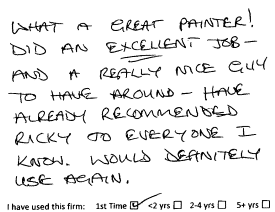 WHAT A GREAT PAINTER!
DID AN EXCELLENT JOB-
AND A REALLY NICE GUY
TO HAVE AROUND - HAVE
ALREADY RECOMMENDED
RICKY TO EVERYONE I
KNOW. WOULD DEFINITELY
USE AGAIN.
I have used this firm: 1st Time ☑ <2 yrs ☐ 2-4 yrs ☐ 5+ yrs ☐